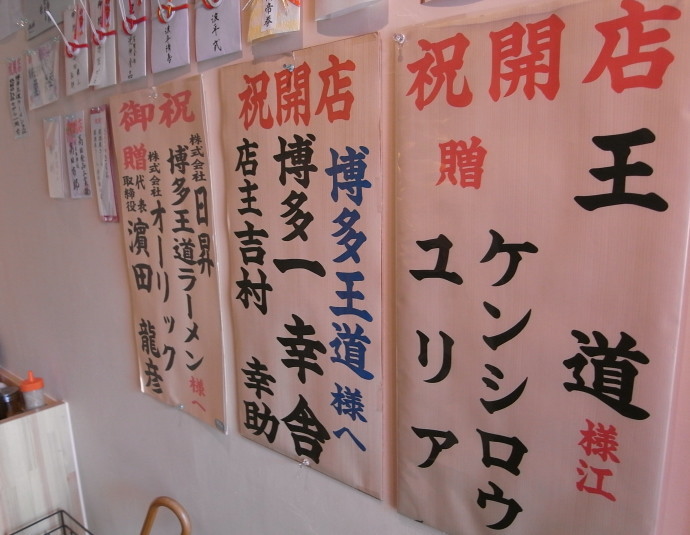 祝開店
王道様江
贈
ケンシロウ
ユリア
祝開店
博多王道様へ
博多一幸舎
店主吉村幸助
御祝
株式会社日昇
博多王道ラーメン様へ
贈
株式会社オーリック
代表取締役濱田龍彦